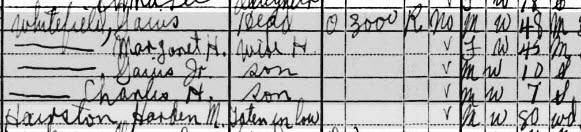 Whitefield, Gaius Head O 3000 R No M W 48 M
—— Margaret H. Wife H. V F W 45 M
—— Gaius Jr. Son V M W 10 S
—— Charles H. Son V M W 7 S
Hairston, Harden M. Father in law V M W 80 Wd